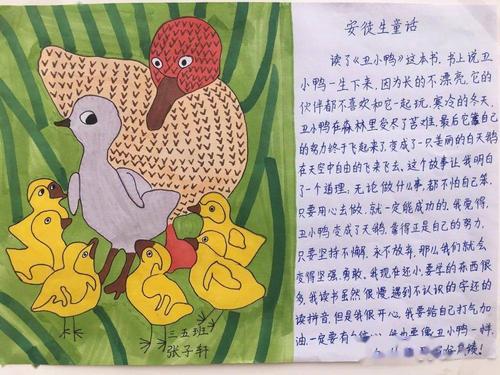 安徒生童话
读了《丑小鸭》这本书，书上说丑
小鸭一生下来，因为长的不漂亮，它的
伙伴都不喜欢和它一起玩，寒冷的冬天，
丑小鸭在森林里受尽了苦难，最后它靠自己
的努力终于飞起来了，变成了一只美丽的白天鹅
在天空中自由的飞来飞去。这个故事让我明白
了一个道理，无论做什么事，都不怕自己笨，
只要用心去做，就一定能成功的。我觉得，
丑小鸭变成了天鹅，靠得正是自己的努力，
只要坚持不懈，永不放弃，那么我们就会
变得坚强，勇敢，我现在还小要学的东西很
多，我读书虽然很慢，遇到不认识的字还的
读拼音，但是我很开心，我要给自己打气加
油，一定要有
丑小鸭一样，
三五班
张子轩